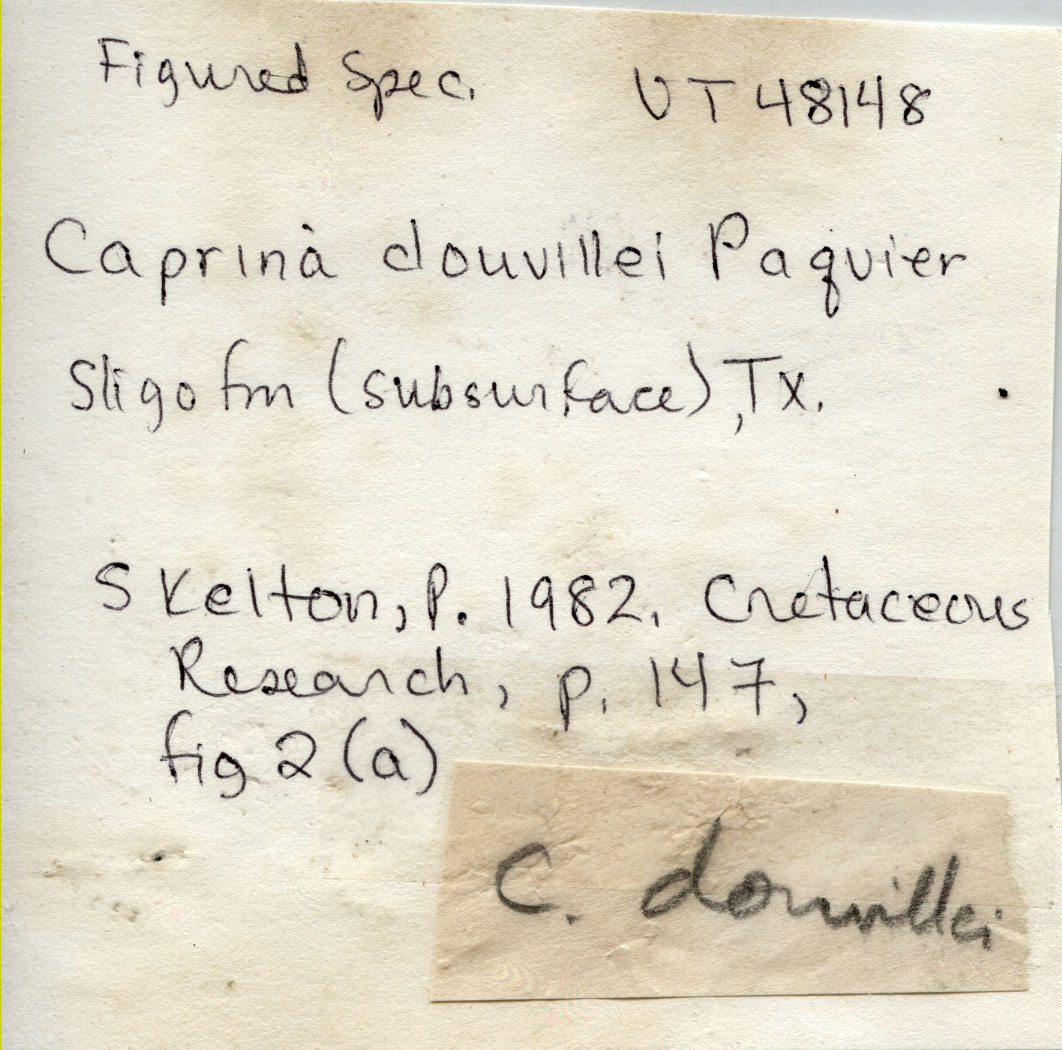 Figured Spec. UT 48148
Caprina douvillei Paquier
Sligo fm (subsurface), Tx.
Skelton, P. 1982. Cretaceous
Research, p. 147,
fig 2 (a)
C. douvillei